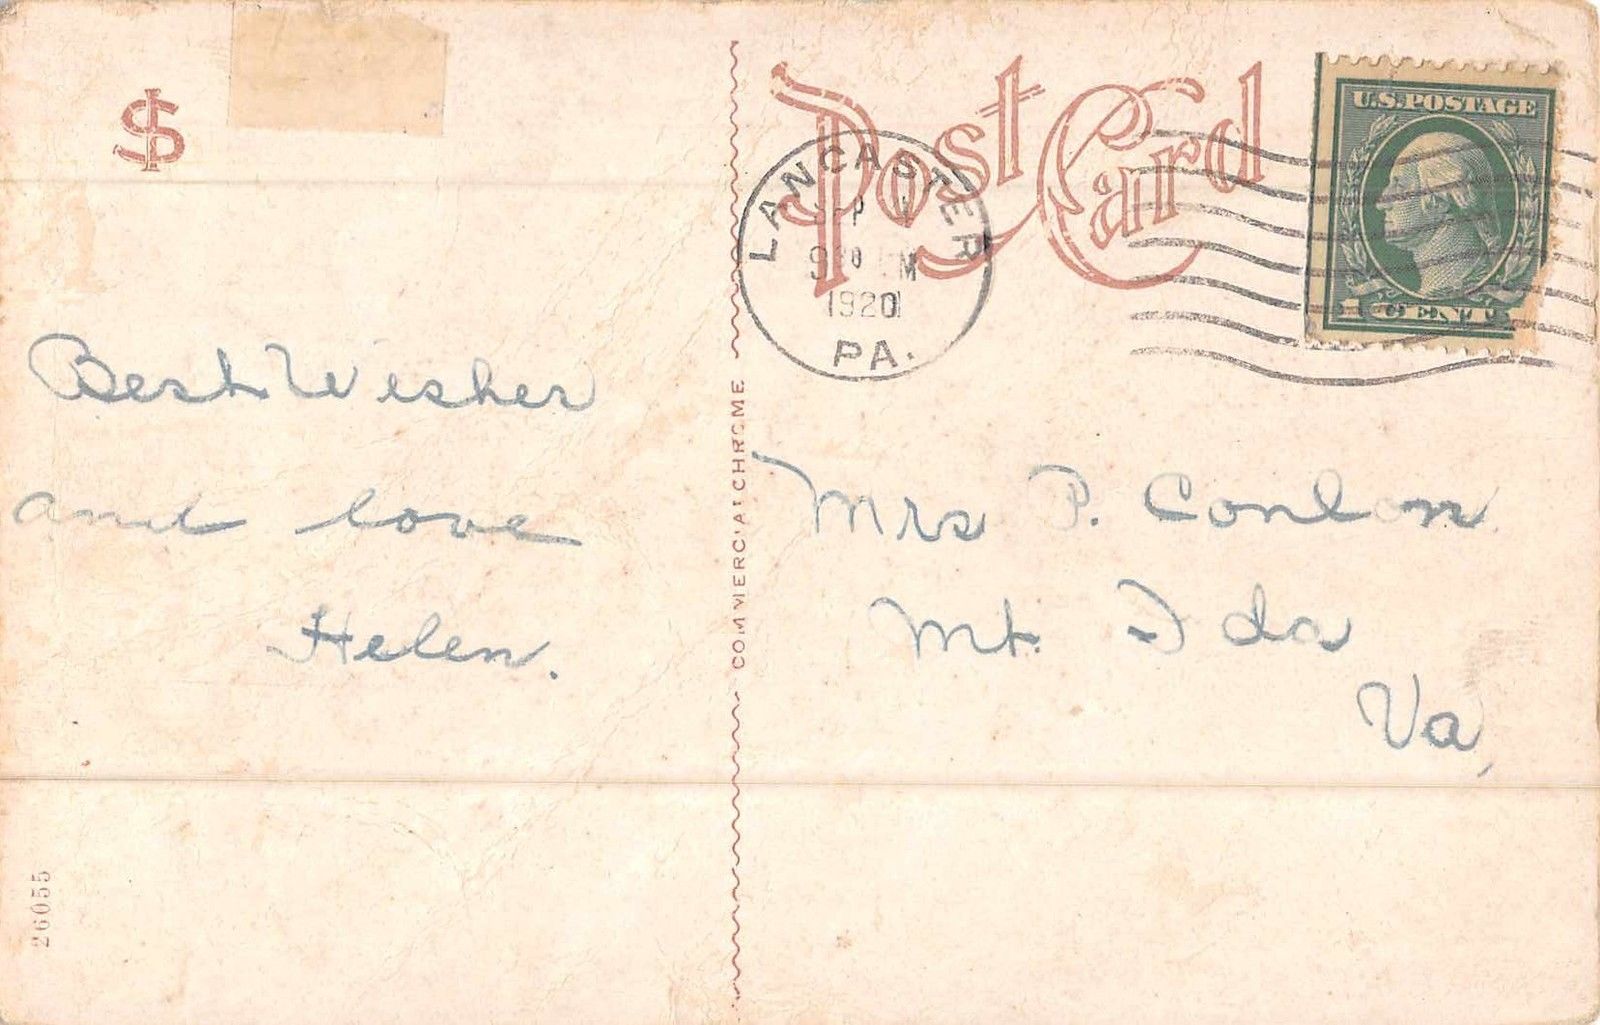 Post Card
U.S. POSTAGE
1 CENT
LANCASTER
1920
PA.
Best Wishes
and love
Helen.
COMMERCIALCHROME
Mrs P. Conlon
Mt. Ida
Va,
26055